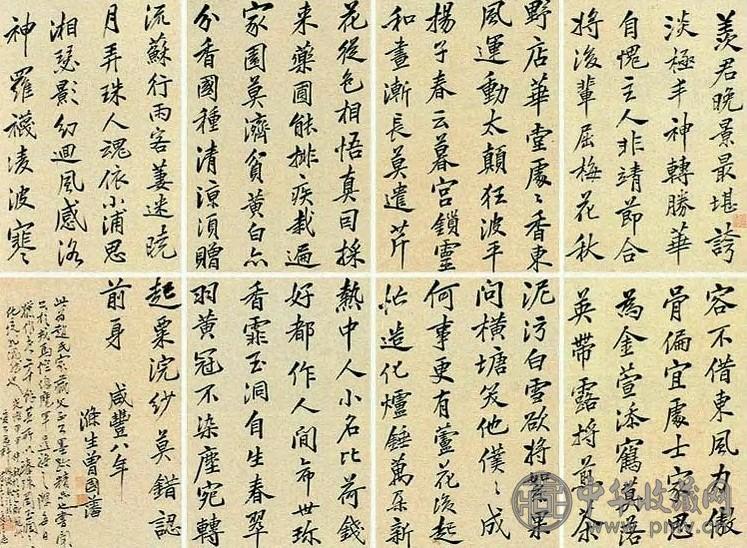 羨君晚景最堪誇
淡極丰神轉勝華
自愧主人非靖節合
將後輩屈梅花秋
容不借東風力傲
骨偏宜處士家思
為金萱添鶴算落
英帶露将煎茶
野店華堂處處香東
風運動太顛狂波平
揚子春云暮宮鎖靈
和晝漸長莫遣芹
泥污白雪欲將果
問橫塘笑他僕僕成
何事更有蘆花後起
忙造化爐錘萬朵新
花從色相悟真司採
来藥圃能排疾栽遍
家園莫濟貧黃白点
分香國種清涼須贈
熱中人小名比荷錢
好都作人間希世珎
香霏玉洞自生春翠
羽黃冠不染塵宛轉
流蘇行雨客萋迷曉
月弄珠人魂依小浦思
湘瑟影幻迴風感洛
神羅襪凌波寒
起粟浣紗莫錯認
前身
咸豐八年
滌生曾國藩
中华收藏网